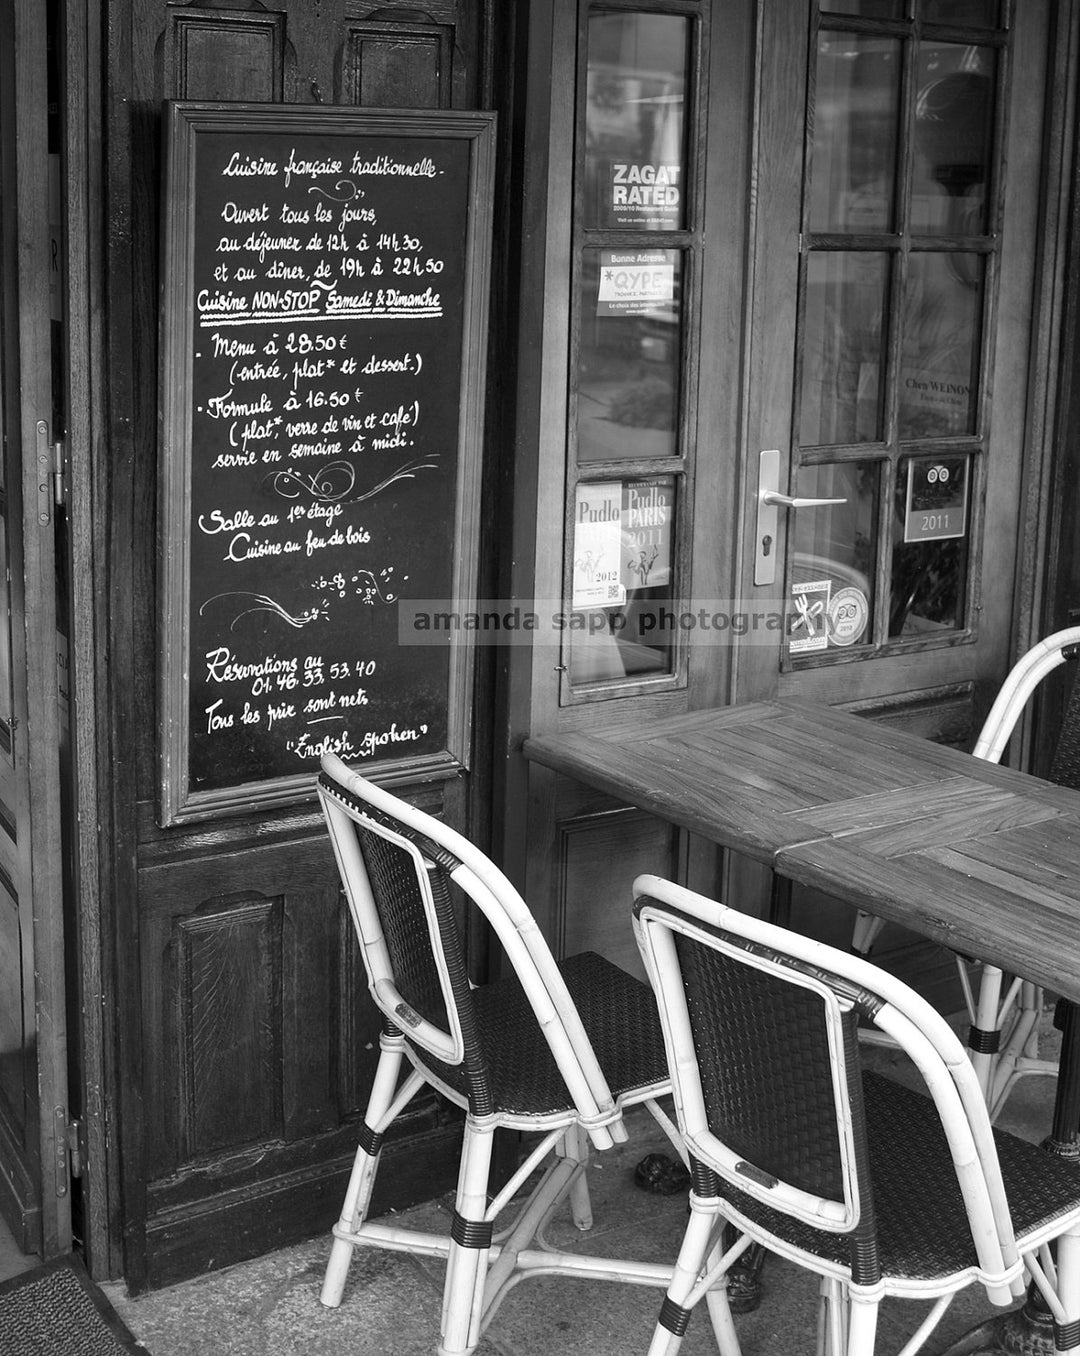 Cuisine française traditionnelle.
Ouvert tous les jours,
au déjeuner de 12h à 14h30,
et au dîner, de 19h à 22h50
Cuisine NON-STOP Samedi & Dimanche
. Menu à 28.50 €
(entrée, plat* et dessert.)
. Formule à 16.50 €
(plat*, verre de vin et café)
servie en semaine à midi.
Salle au 1er étage
Cuisine au feu de bois
Réservations au
01.46.33.53.40
Tous les prix sont nets
"English spoken"
ZAGAT
RATED
2009/10 Restaurant Guide
Bonne Adresse
*QYPE
Chen WEINON
Pudlo
2012
Pudlo
PARIS
2011
2011
2010
amanda sapp photography